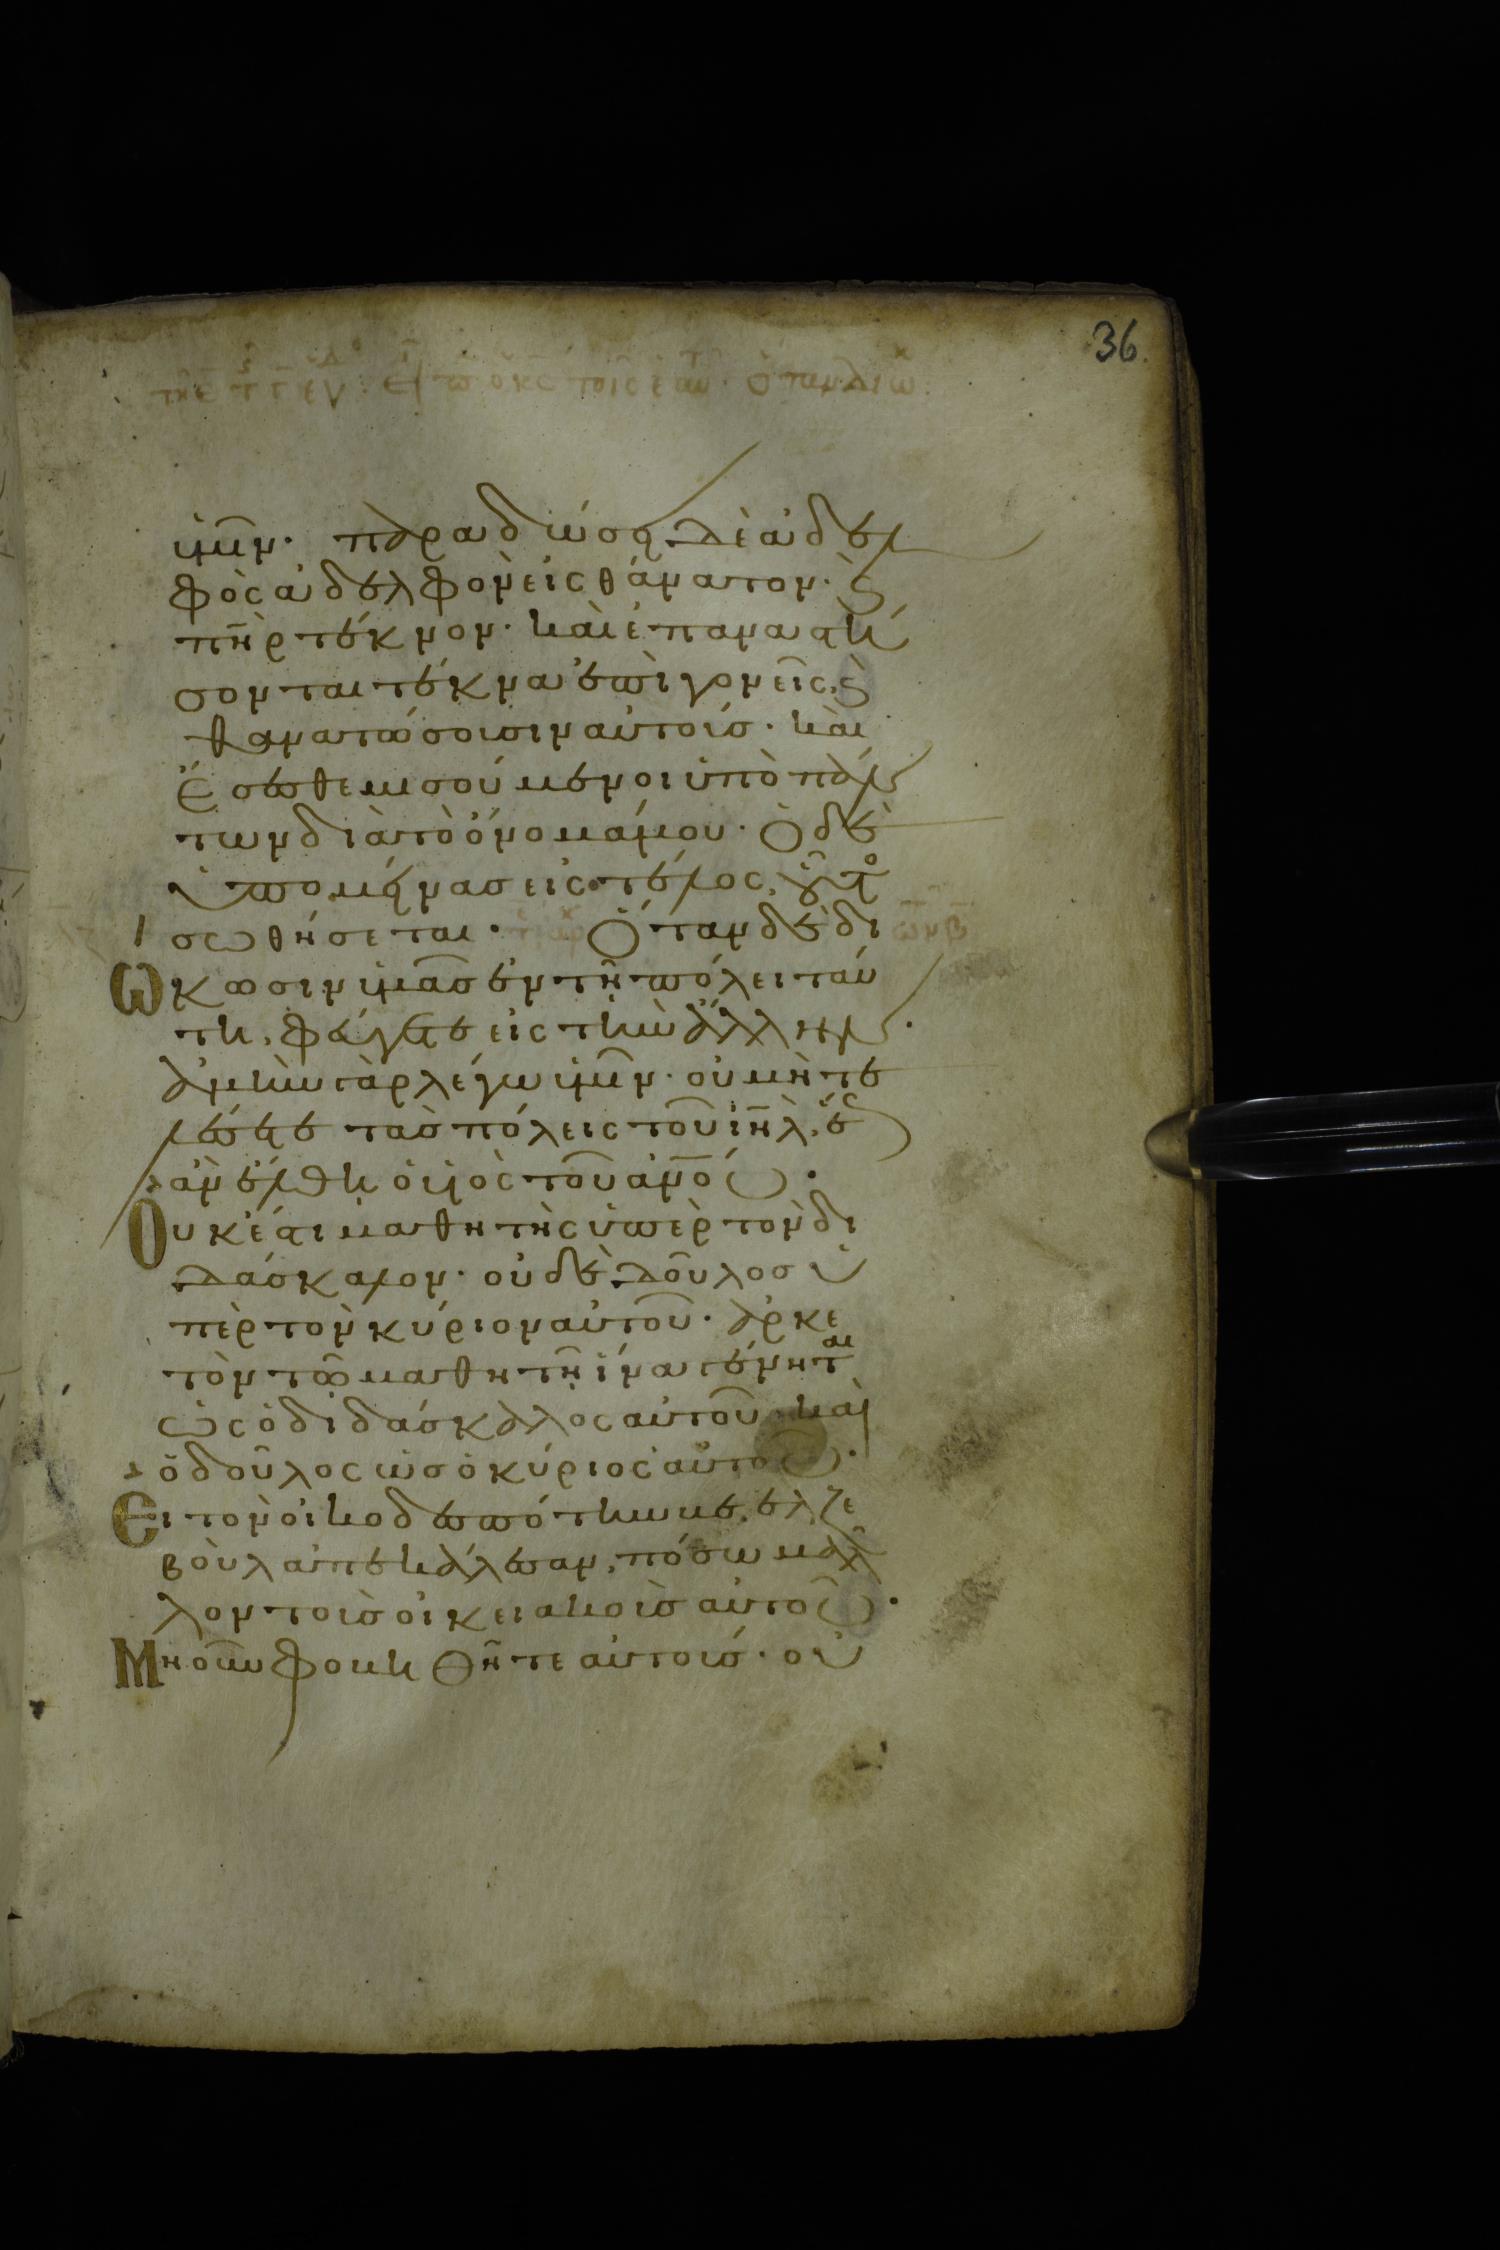 36
ὑμῖν. παραδώσει δὲ ἀδελ
φὸς ἀδελφὸν εἰς θάνατον. ϗ
πὴρ τέκνον. καὶ ἐπαναστή
σονται τέκνα ἐπὶ γονεῖς, ϗ
θανατώσουσιν αὐτούς. καὶ
ἔσεσθε μισούμενοι ὑπὸ πάν
των διὰ τὸ ὄνομά μου. ὁ δὲ
ὑπομείνας εἰς τέλος, οὗτος
σωθήσεται. Ὅταν δὲ δι
ώκωσιν ὑμᾶς ἐν τῆ πόλει ταύ
τη, φεύγετε εἰς τὴν ἄλλην.
ἀμὴν γὰρ λέγω ὑμῖν. οὐ μὴ τε
λέσητε τὰς πόλεις τοῦ ιηλ, ἕως
ἂν ἔλθη ὁ υἱὸς τοῦ ανου.
Οὐκ ἔστι μαθητὴς ὑπὲρ τὸν δι
δάσκαλον. οὐδὲ δοῦλος ὑ
πὲρ τὸν κύριον αὐτοῦ. ἀρκε
τὸν τῶ μαθητῆ ἵνα γένηται
ὡς ὁ διδάσκαλος αὐτοῦ. καὶ
ὁ δοῦλος ὡς ὁ κύριος αὐτοῦ.
Εἰ τὸν οἰκοδεσπότην βεελζε
βοὺλ ἀπεκάλεσαν, πόσω μᾶλ
λον τοὺς οἰκειακοὺς αὐτοῦ.
Μὴ οὖν φοβηθῆτε αὐτούς. οὐ